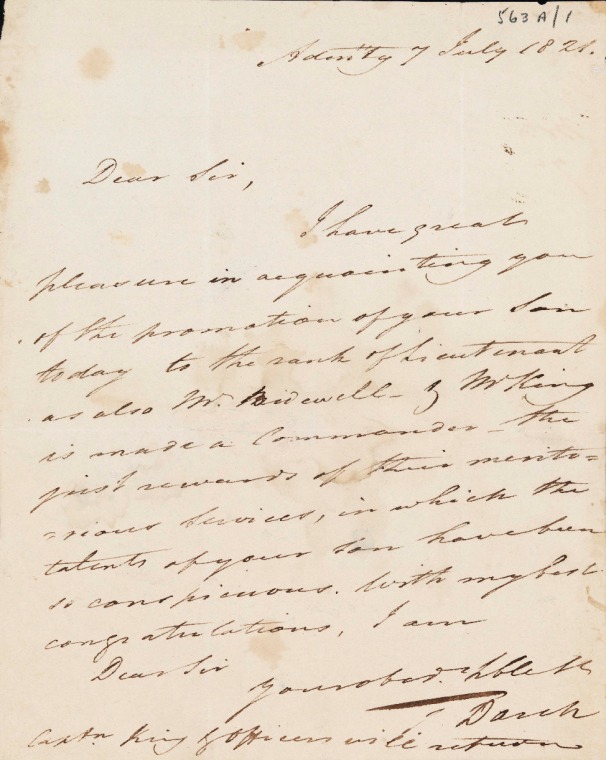 563 A/1
Admlty 7 July 1821.
Dear Sir,
I have great
pleasure in acquainting you
of the promotion of your Son
today to the rank of Lieutenant
as also Mr. Bidewell - & Mr King
is made a Commander - the
just rewards of their merito=
=rious Services, in which the
talents of your Son have been
so conspicuous. With my best
congratulations, I am
Dear Sir
your obed. Hble St
Darch
Captn. King & Officers will return